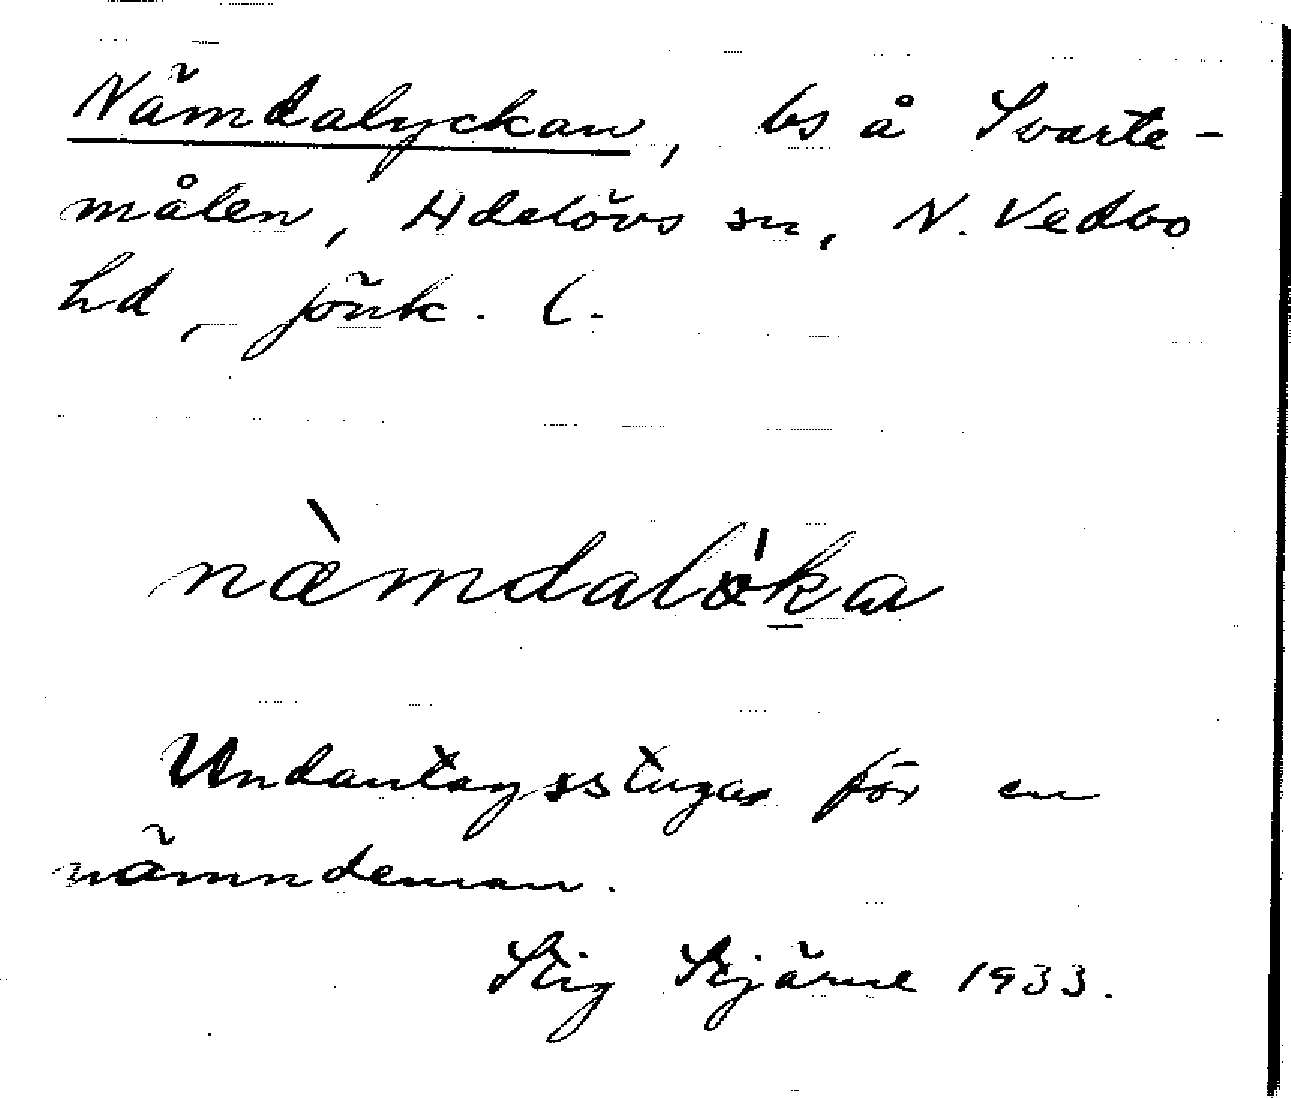 Nämdalyckan, bs å Svarte-
målen, Adelövs sn, N. Vedbo
hd, Jönk. l.
næ̀mdalö́ka
Undantagsstuga för en
nämndeman.
Stig Stjärne 1933.